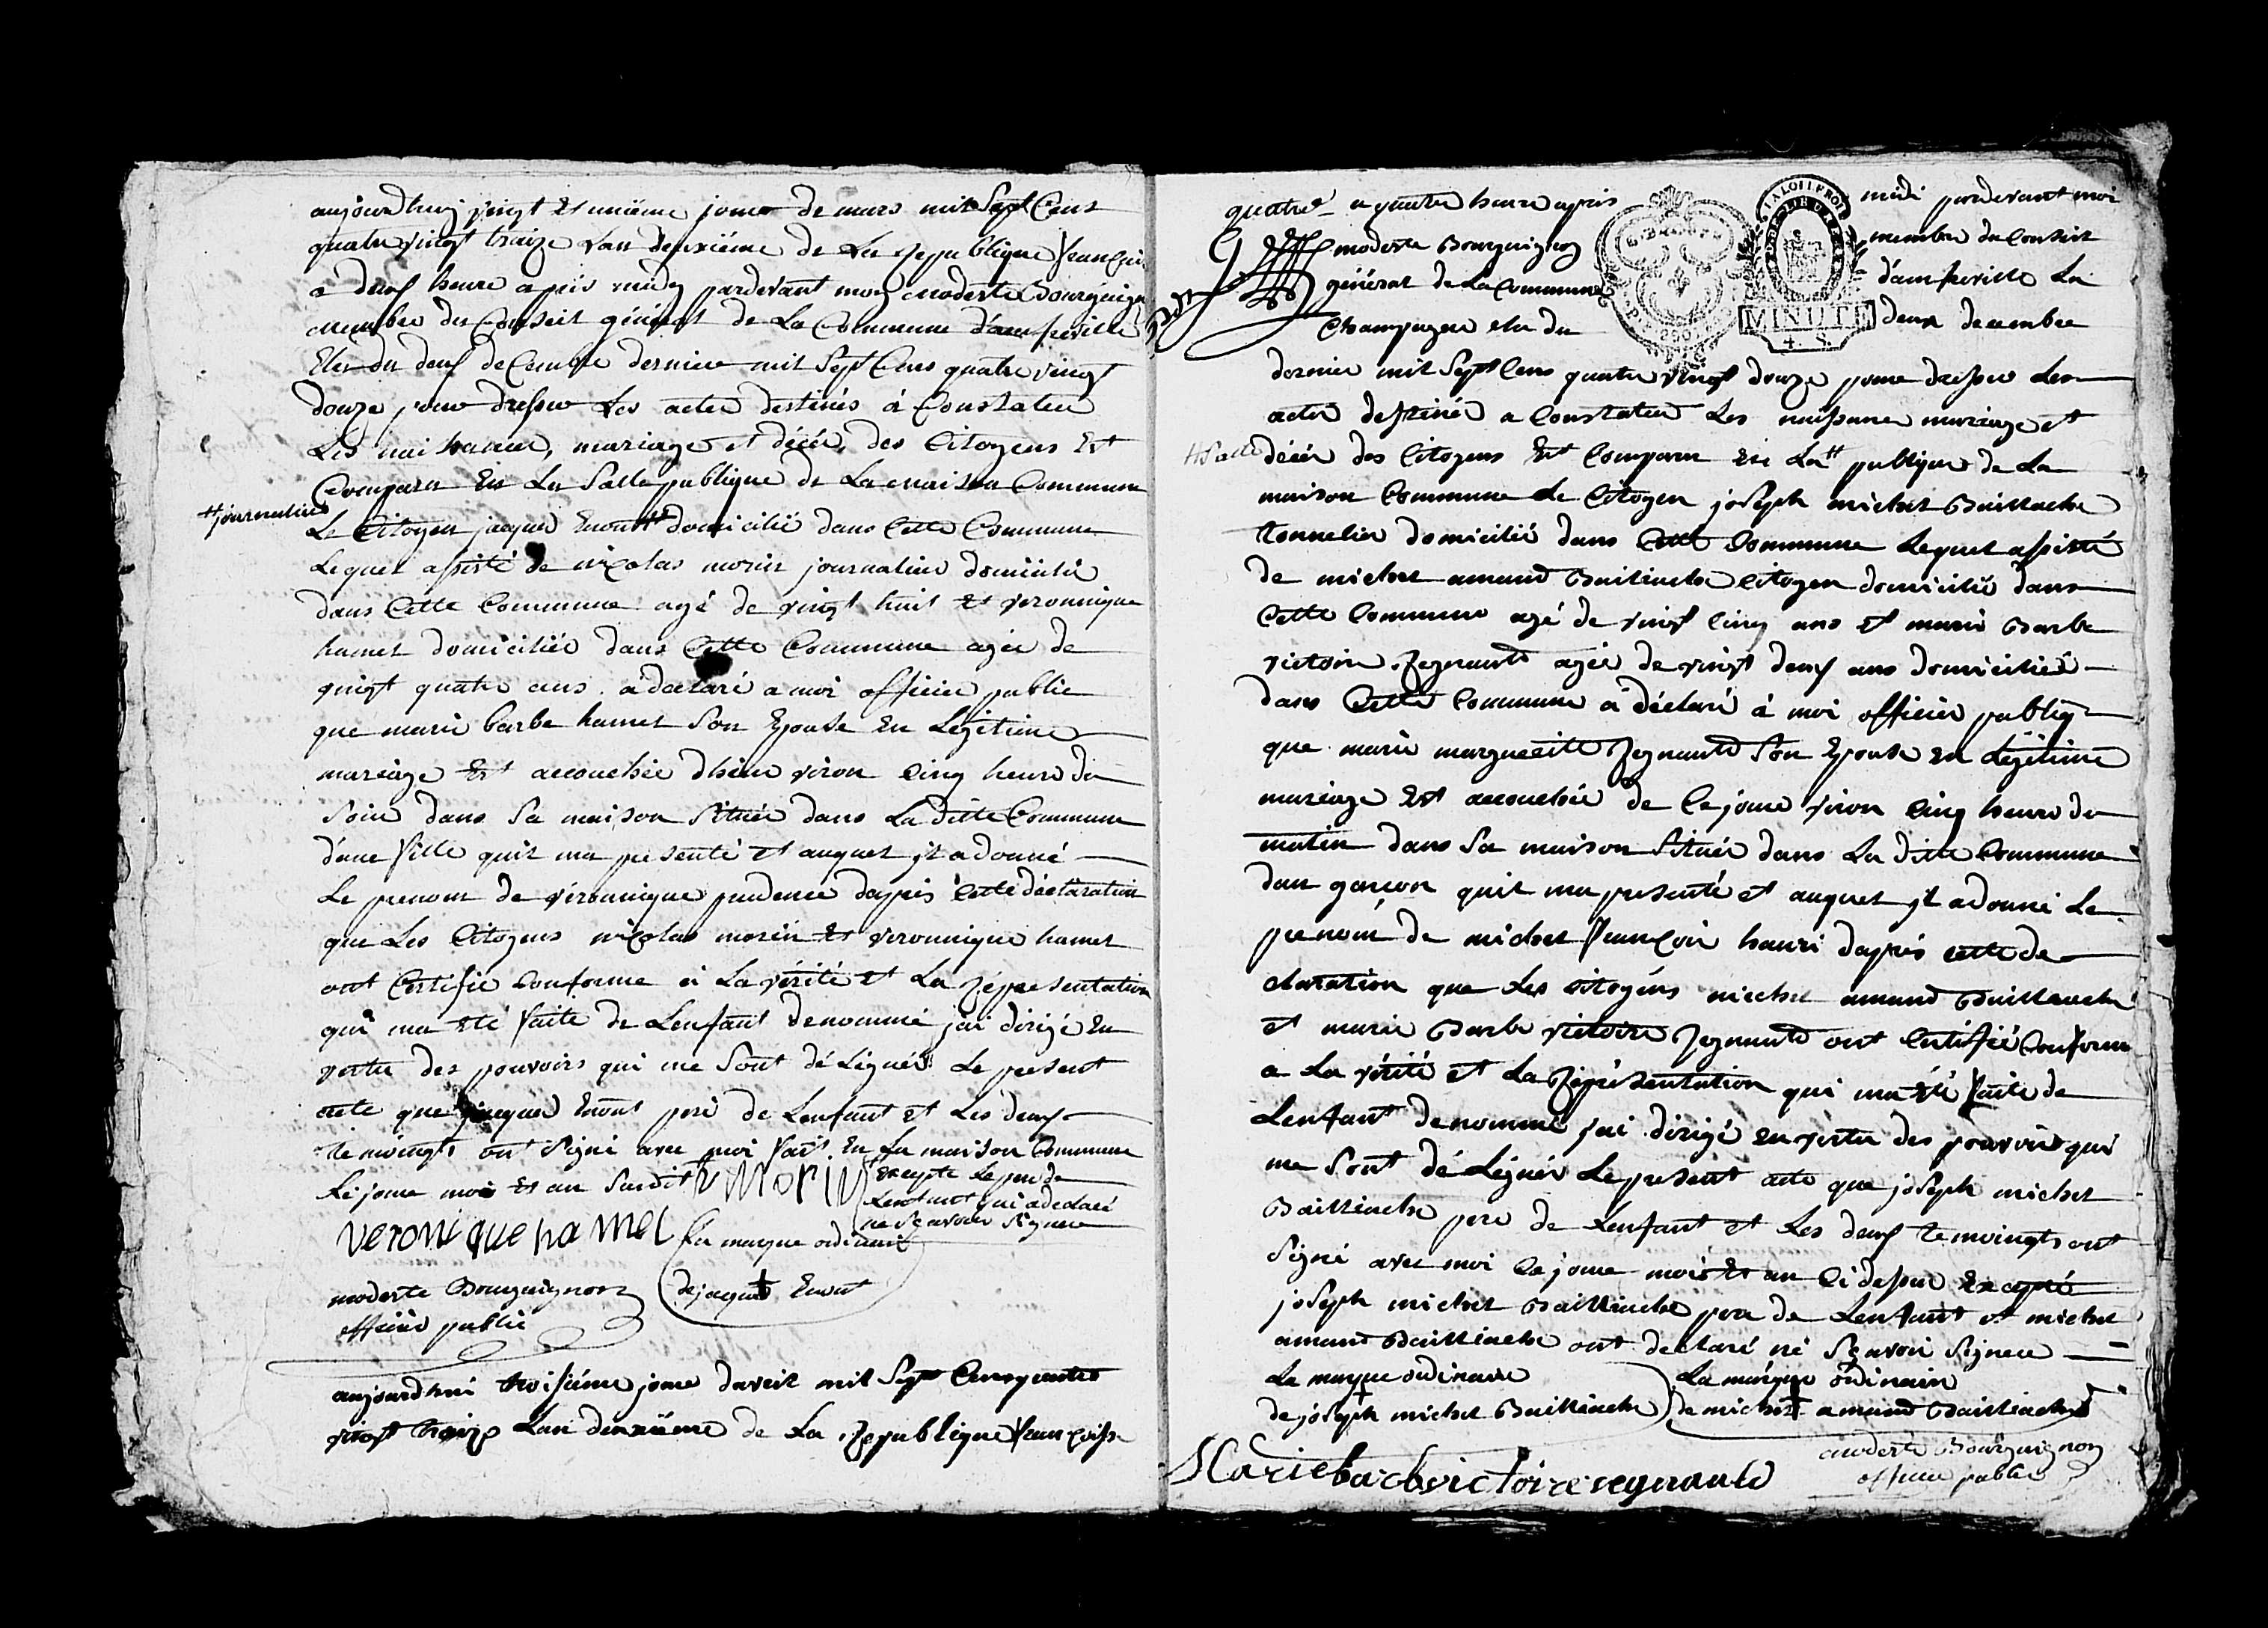 aujourdhuy vingt et unième jour de mars mil Sept Cent
quatre vingt traize Lan deuxiéme de La republique françoise
a deuf heure apris midy pardevant moy modeste Bourguignon
membre du Conseil général de La Commune d'amfreville
Elu du deuf decembre dernier mil Sept Cens quatre vingt
douze pour dresser Les actes destinés à Constater
Les naissances, mariage et décés, des Citoyens Est
Comparu En La Salle publique de La maison Commune
#journalier
Le Citoyen jacque Enout # domicilié dans Cette Commune
Lequel assisté de nicolas morin journalier domicilié
dans Cette Commune agé de vingt huit Et veronnique
hamet domiciliée dans Cette Commune agée de
vingt quatre ans. a déclaré a moi officier public
que marie barbe hamet Son Epouse En Légitime
mariage Est accouchée dhier viron Cinq heure du
Soir dans Sa maison Située dans La ditte Commune
d'une fille quil ma presenté et auquel jl a donné
Le prenom de véronnique prudence dapris Cette déclaration
que Les Citoyens nicolas morin Et veronnique hamet
ont Certifié Conforme à La vérité et La répresentation
qui ma Eté faite de Lenfant denommé jai dirigé En
vertu des pouvoirs qui me Sont délégués Le present
acte que jacque Enout pere de Lenfant et Les deuf
temoingts ont Signé avec moi fait En La maison Commune
Le jour mois Et an Susdit n morin Excepté Le pere de
Lenfant qui a declaré
ne Sçavoir Signer
veronique hamel La marque ordinaire
modeste Bourguignon de jacque + Enout
officier public
aujourdhui troisiéme jour davril mil Sept Cens quatre
vingt traize Lan deuxiéme de La republique françoisse
quatre a quatre heure apris midi pardevant moi
modeste Bourguignon membre du Conseil
général de La Commune d'amfreville La
Champagne elu du deux decembre
LA LOI LE ROI
MINUTE
4. S.
dernier mil Sept Cens quatre vingt douze pour dresser Les
actes destinés a Constater Les naissance mariage et
#Salle décés des Citoyens Est Comparu En La # publique de La
maison Commune Le Citoyen joseph michel Baillache
tonnelier domicilié dans Cette Commune Lequel assisté
de michel amand Baillache Citoyen domicilié dans
Cette Commune agé de vingt Cinq ans et marie Barbe
victoire regnault agée de vingt deuf ans domiciliée
dans Cette Commune a déclaré à moi officier public
que marie marguerite regnault Son Epouse En Légitime
mariage Est accouchée de Ce jour viron Cinq heure du
matin dans Sa maison Située dans La ditte Commune
dun garcon quil ma presenté et auquel jl a donné Le
prenom de michel françois hanri dapris cette de
claration que Les citoyéns michel amand Baillache
et marie Barbe victoire regnault ont Certifié Conforme
a La vérité et La répresentation qui ma Eté faite de
Lenfant denommé jai dirigé en vertu des pouvoirs qui
me Sont délégués Le present acte que joseph michel
Baillache pere de Lenfant et Les deuf temoingts ont
Signé avec moi Ce jour mois Et an Ci dessus Excepté
joseph michel Baillache pere de Lenfant et michel
amand Baillache ont declaré né Sçavoir Signer
La marque ordinaire La marque ordinaire
de joseph + michel Baillache de michel + amand Baillache
modeste Bourguignon
Marie barbe victoire regnault officier public